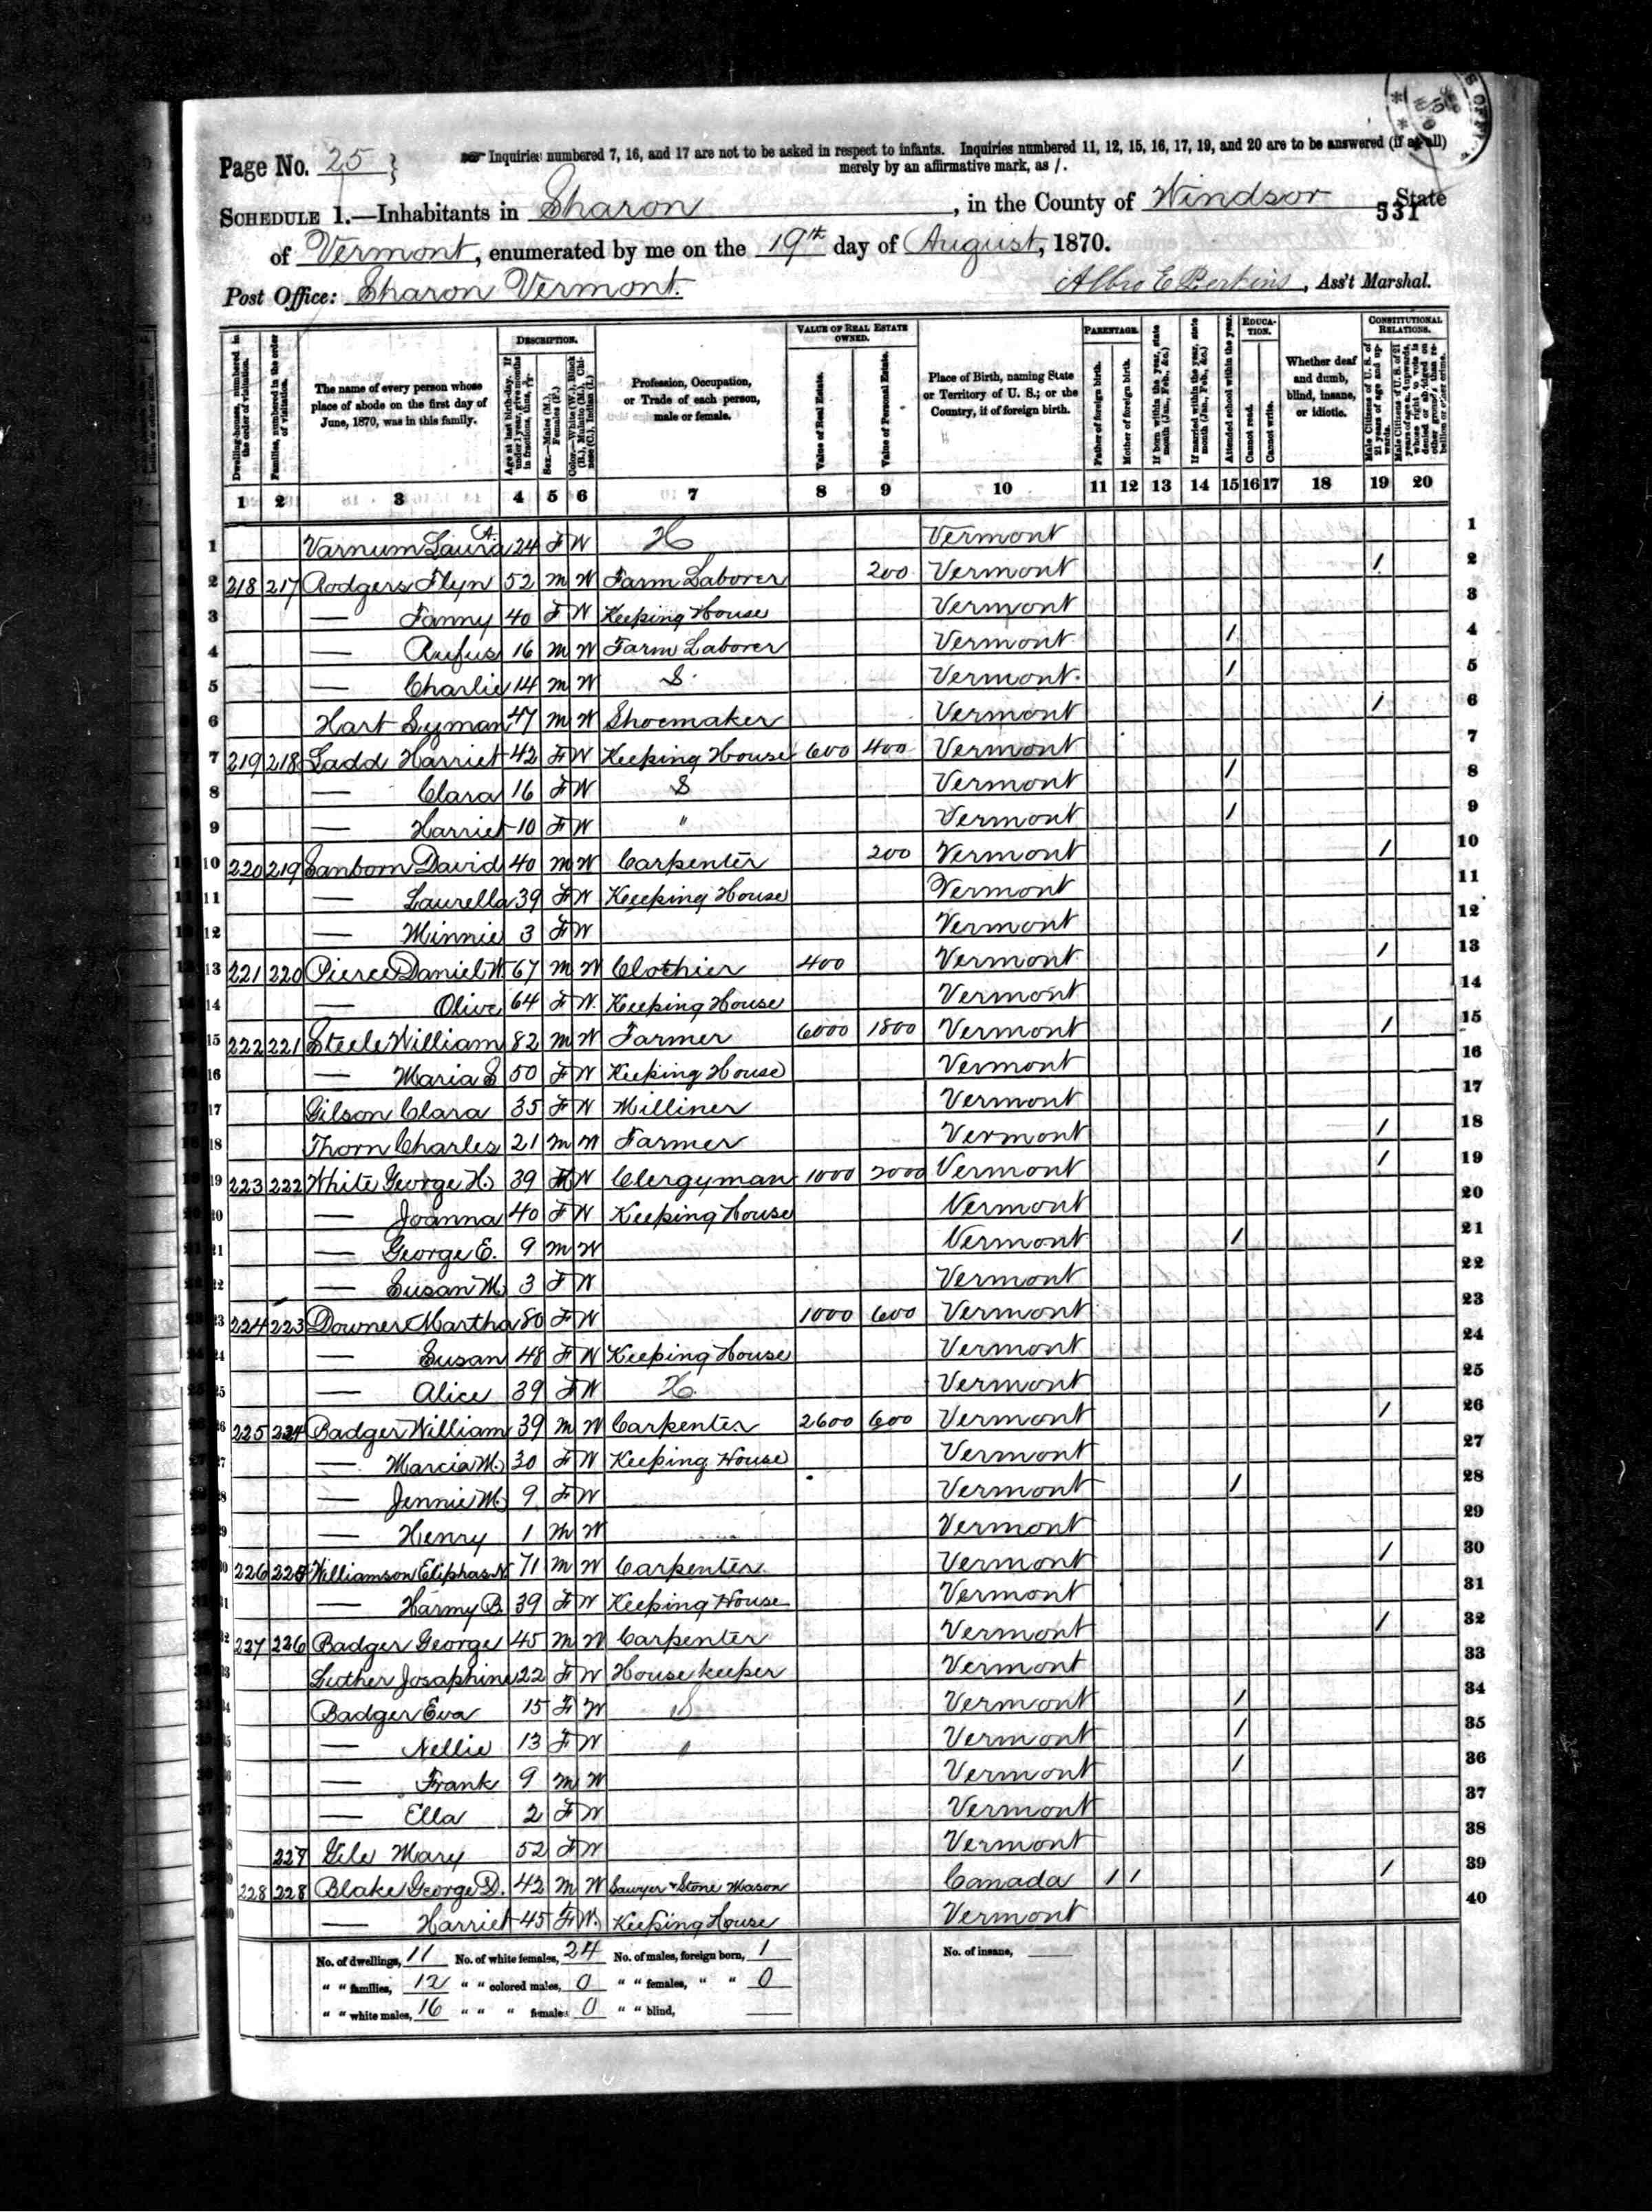 Page No. 25 }
Inquiries numbered 7, 16, and 17 are not to be asked in respect to infants. Inquiries numbered 11, 12, 15, 16, 17, 19, and 20 are to be answered (if at all)
merely by an affirmative mark, as /.
SCHEDULE 1.—Inhabitants in Sharon, in the County of Windsor, State
531
of Vermont, enumerated by me on the 19th day of August, 1870.
Post Office: Sharon Vermont.
Albro E Perkins, Ass't Marshal.
Dwelling-houses, numbered in the order of visitation.
Families, numbered in the order of visitation.
The name of every person whose place of abode on the first day of June, 1870, was in this family.
DESCRIPTION.
Age at last birth-day. If under 1 year, give months in fractions, thus,
Sex.—Males (M.), Females (F.)
Color.—White (W.), Black (B.), Mulatto (M.), Chinese (C.), Indian (I.)
Profession, Occupation, or Trade of each person, male or female.
VALUE OF REAL ESTATE OWNED.
Value of Real Estate.
Value of Personal Estate.
Place of Birth, naming State or Territory of U. S.; or the Country, if of foreign birth.
PARENTAGE.
Father of foreign birth.
Mother of foreign birth.
If born within the year, state month (Jan., Feb., &c.)
If married within the year, state month (Jan., Feb., &c.)
Attended school within the year.
EDUCATION.
Cannot read.
Cannot write.
Whether deaf and dumb, blind, insane, or idiotic.
CONSTITUTIONAL RELATIONS.
Male Citizens of U. S. of 21 years of age and upwards.
Male Citizens of U. S. of 21 years of age and upwards, whose right to vote is denied or abridged on other grounds than rebellion or other crime.
1 2 3 4 5 6 7 8 9 10 11 12 13 14 15 16 17 18 19 20
1 Varnum Laura A. 24 F W H Vermont 1
2 218 217 Rodgers Flyn 52 M W Farm Laborer 200 Vermont / 2
3 — Fanny 40 F W Keeping House Vermont 3
4 — Rufus 16 M W Farm Laborer Vermont / 4
5 — Charlie 14 M W S. Vermont. / 5
6 Hart Lyman 47 M W Shoemaker Vermont / 6
7 219 218 Ladd Harriet 42 F W Keeping House 600 400 Vermont 7
8 — Clara 16 F W S Vermont / 8
9 — Harriet 10 F W " Vermont / 9
10 220 219 Sanborn David 40 M W Carpenter 200 Vermont / 10
11 — Laurella 39 F W Keeping House Vermont 11
12 — Minnie 3 F W Vermont 12
13 221 220 Pierce Daniel W. 67 M W Clothier 400 Vermont / 13
14 — Olive 64 F W. Keeping House Vermont 14
15 222 221 Steele William 82 M W Farmer 6000 1800 Vermont / 15
16 — Maria S 50 F W Keeping House Vermont 16
17 Gilson Clara 35 F W Milliner Vermont 17
18 Thorn Charles 21 M W Farmer Vermont / 18
19 223 222 White George H. 39 M W Clergyman 1000 2000 Vermont / 19
20 — Joanna 40 F W Keeping House Vermont 20
21 — George E. 9 M W Vermont / 21
22 — Susan M. 3 F W Vermont 22
23 224 223 Downer Martha 80 F W 1000 600 Vermont 23
24 — Susan 48 F W Keeping House Vermont 24
25 — Alice 39 F W H. Vermont 25
26 225 224 Badger William 39 M W Carpenter 2600 600 Vermont / 26
27 — Marcia M. 30 F W Keeping House Vermont 27
28 — Jennie M. 9 F W Vermont / 28
29 — Henry 1 M W Vermont 29
30 226 225 Williamson Eliphas N. 71 M W Carpenter. Vermont / 30
31 — Harmy B. 39 F W Keeping House Vermont 31
32 227 226 Badger George 45 M W Carpenter Vermont / 32
33 Luther Josaphine 22 F W House keeper Vermont 33
34 Badger Eva 15 F W S Vermont / 34
35 — Nellie 13 F W " Vermont / 35
36 — Frank 9 M W Vermont / 36
37 — Ella 2 F W Vermont 37
38 227 Gile Mary 52 F W Vermont 38
39 228 228 Blake George D. 42 M W Sawyer & Stone Mason Canada / / / 39
40 — Harriet 45 F W. Keeping House Vermont 40
No. of dwellings, 11 No. of white females, 24 No. of males, foreign born, 1 No. of insane,
" " families, 12 " " colored males, 0 " " females, " " 0
" " white males, 16 " " " females 0 " " blind,